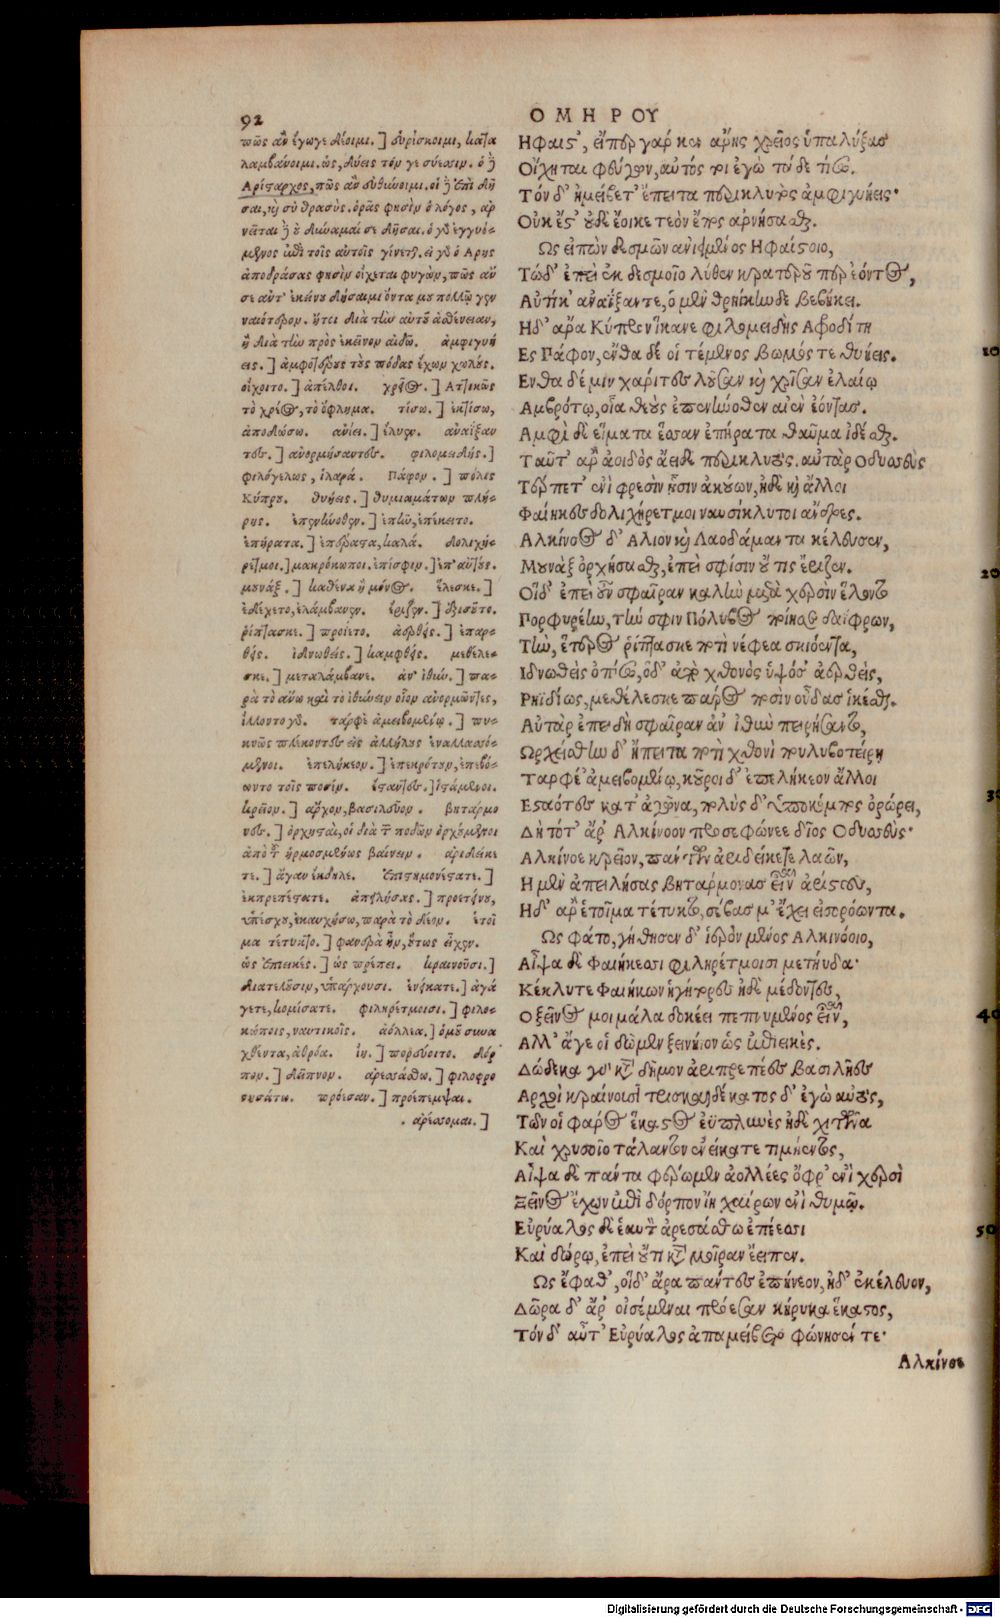 92
ΟΜΗΡΟΥ
πῶς ἂν ἔγωγε δέοιμι.] εὑρίσκοιμι, κατα
λαμβάνοιμι. ὡς, λύεις τόν γε σύεσιν. ὁ δὲ
Αρίσταρχος, πῶς ἂν εὐθύνοιμι. οἱ δὲ ἐπὶ δῆ
σαι, καὶ σὺ θρασύς. ὁρᾶς φησὶν ὁ λόγος, ἀρ
νεῖται δὲ οὐ δύναμαί σε δῆσαι. ὁ γὰρ ἐγγυό-
μενος ἐπὶ τοῖς αὐτοῖς γίνεται. εἰ γὰρ ὁ Αρης
ἀποδράσας φησὶν οἴχεται φυγὼν, πῶς ἂν
σε ἀντ' ἐκείνου δήσαιμι ὄντα μου πολλῷ γεν
ναιότερον. ἤτοι διὰ τὴν αὐτοῦ ἀσθένειαν,
ἢ διὰ τὴν πρὸς ἐκεῖνον αἰδῶ. ἀμφιγυή
εις.] ἀμφοτέρους τοὺς πόδας ἔχων χωλούς.
οἴχοιτο.] ἀπέλθοι. χρέος.] Ατλικῶς
τὸ χρέος, τὸ ὄφλημα. τίσω.] ἐκτίσω,
ἀποδώσω. ἀνίει.] ἔλυεν. ἀναΐξαν
τες.] ἀνορμήσαντες. φιλομειδής.]
φιλόγελως, ἱλαρά. Πάφον.] πόλις
Κύπρου. θυήεις.] θυμιαμάτων πλή-
ρης. ἐπενήνοθεν.] ἐπῆν, ἐπέκειτο.
ἐπήρατα.] ἐπέρατα, καλά. δολιχή-
ρετμοι.] μακρόκωποι. ἐπίσφιν.] ἐπ' αὐτούς.
μουνάξ.] καθένα ἢ μόνος. ἕλεσκε.]
ἐδέχετο, ἐλάμβανεν. ἔριζεν.] ἐξισοῦτο.
ῥίπτασκε.] προίετο. ἀερθείς.] ἐπαρ-
θείς. ἰδνωθείς.] καμφθείς. μεθέλε-
σκε.] μεταλάμβανε. ἀν' ἰθύν.] πα-
ρὰ τὸ ἄνω καὶ τὸ ἰθύνειν οἷον ἀνορμῶντες,
ἥλλοντο γὰρ. ταρφὲ ἀμειβομένω.] πυ-
κνῶς πλέκοντες εἰς ἀλλήλους ἐναλλασσό-
μενοι. ἐπελήκεον.] ἐπεκρότουν, ἐπεβό-
ωντο τοῖς ποσίν. ἑσταότες.] ἱστάμενοι.
κρεῖον.] ἄρχον, βασιλεῦον. βητάρμο
νες.] ὀρχησταὶ, οἱ διὰ τῶν ποδῶν ὀρχούμενοι
ἀπὸ τοῦ ἡρμοσμένως βαίνειν. ἀριδείκε
τε.] ἄγαν ἔκδηλε. ἐπιτημονέστατε.]
ἐκπρεπέστατε. ἀπείλησας.] προετείνου,
ὑπίσχου, ἐκαυχήσω, παρὰ τὸ δέον. ἑτοῖ
μα τέτυκτο.] φανερὰ ἦν, οὕτως εἶχεν.
ὡς ἐπιεικές.] ὡς πρέπει. κραινοῦσι.]
διατελοῦσιν, ὑπάρχουσι. ἐνείκατε.] ἀγά
γετε, κομίσατε. φιληρέτμοισι.] φιλο-
κώποις, ναυτικοῖς. ἀόλλεα.] ὁμοῦ συνα
χθέντα, ἀθρόα. ἴη.] πορεύοιτο. δόρ
πον.] δεῖπνον. ἀρεσάσθω.] φιλοφρο
νησάτω. πρόεσαν.] προέπεμψαι.
. ἀρέσσομαι.]
Ηφαιστ', εἴπερ γάρ κεν ἄρης χρεῖος ὑπαλύξας
Οἴχηται φεύγων, αὐτός τοι ἐγὼ τάδε τίσω.
Τὸν δ' ἠμείβετ' ἔπειτα περικλυτὸς ἀμφιγυήεις·
Οὐκ ἔστ' οὐδὲ ἔοικε τεὸν ἔπος ἀρνήσασθαι.
Ως εἰπὼν δεσμῶν ἀνίη μένος Ηφαίστοιο,
Τὼ δ' ἐπεὶ ἐκ δεσμοῖο λύθεν κρατεροῦ περ ἐόντος,
Αὐτίκ' ἀναΐξαντε, ὁ μὲν θρηίκηνδε βεβήκει.
Ηδ' ἄρα Κύπρον ἵκανε φιλομειδὴς Αφροδίτη
Ες Πάφον, ἔνθα δέ οἱ τέμενος βωμός τε θυήεις. 10
Ενθα δέ μιν χάριτες λοῦσαν καὶ χρῖσαν ἐλαίῳ
Αμβρότῳ, οἷα θεοὺς ἐπενήνοθεν αἰὲν ἐόντας.
Αμφὶ δὲ εἵματα ἕσσαν ἐπήρατα θαῦμα ἰδέσθαι.
Ταῦτ' ἄρ ἀοιδὸς ἄειδε περικλυτός. αὐτὰρ Οδυσσεὺς
Τέρπετ' ἐνὶ φρεσὶν ᾗσιν ἀκούων, ἠδὲ καὶ ἄλλοι
Φαίηκες δολιχήρετμοι ναυσίκλυτοι ἄνδρες.
Αλκίνοος δ' Αλιον καὶ Λαοδάμαντα κέλευσεν,
Μουνὰξ ὀρχήσασθαι, ἐπεὶ σφίσιν οὔ τις ἔριζεν. 20
Οἱ δ' ἐπεὶ οὖν σφαῖραν καλὴν μετὰ χερσὶν ἕλοντο
Πορφυρέην, τήν σφιν Πόλυβος ποίησε δαΐφρων,
Τὴν, ἕτερος ῥίπτασκε ποτὶ νέφεα σκιόεντα,
Ιδνωθεὶς ὀπίσω, ὁ δ' ἀπὸ χθονὸς ὑψόσ' ἀερθεὶς,
Ρηϊδίως, μεθέλεσκε πάρος ποσὶν οὖδας ἱκέσθαι.
Αὐτὰρ ἐπειδὴ σφαῖραν ἀν' ἰθὺν πειρήσαντο,
Ωρχείσθην δ' ἤπειτα ποτὶ χθονὶ πουλυβοτείρῃ
Ταρφέ' ἀμειβομένω, κοῦροι δ' ἐπελήκεον ἄλλοι
Εσταότες κατ' ἀγῶνα, πολὺς δ' ὑπὸ κόμπος ὀρώρει, 30
Δὴ τότ' ἄρ' Αλκίνοον προσεφώνεε δῖος Οδυσσεύς·
Αλκίνοε κρεῖον, πάντων ἀριδείκετε λαῶν,
Η μὲν ἀπείλησας βητάρμονας εἶναι ἀρίστους,
Ηδ' ἄρ ἑτοῖμα τέτυκτο, σέβας μ' ἔχει εἰσορόωντα.
Ως φάτο, γήθησεν δ' ἱερὸν μένος Αλκινόοιο,
Αἶψα δὲ Φαιήκεσσι φιληρέτμοισι μετηύδα·
Κέκλυτε Φαιήκων ἡγήτορες ἠδὲ μέδοντες,
Ο ξεῖνος μοι μάλα δοκέει πεπνυμένος εἶναι, 40
Αλλ' ἄγε οἱ δῶμεν ξεινήιον ὡς ἐπιεικές.
Δώδεκα γὰρ κατὰ δῆμον ἀριπρεπέες βασιλῆες
Αρχοὶ κραίνουσι τρισκαιδέκατος δ' ἐγὼ αὐτὸς,
Τῶν οἱ φᾶρος ἕκαστος ἐϋπλυνὲς ἠδὲ χιτῶνα
Καὶ χρυσοῖο τάλαντον ἐνείκατε τιμήεντος,
Αἶψα δὲ πάντα φέρωμεν ἀολλέες ὄφρ' ἐνὶ χερσὶ
Ξεῖνος ἔχων ἐπὶ δόρπον ἴῃ χαίρων ἐνὶ θυμῷ.
Εὐρύαλος δέ ἑαυτὸν ἀρεσάσθω ἐπέεσσι 50
Καὶ δώρῳ, ἐπεὶ οὔτι κατὰ μοῖραν ἔειπεν.
Ως ἔφαθ', οἱ δ' ἄρα πάντες ἐπῄνεον, ἠδ' ἐκέλευον,
Δῶρα δ' ἄρ' οἰσέμεναι πρόεσαν κήρυκα ἕκαστος,
Τὸν δ' αὖτ' Εὐρύαλος ἀπαμείβετο φώνησέν τε·
Αλκίνοε
Digitalisierung gefördert durch die Deutsche Forschungsgemeinschaft - DFG